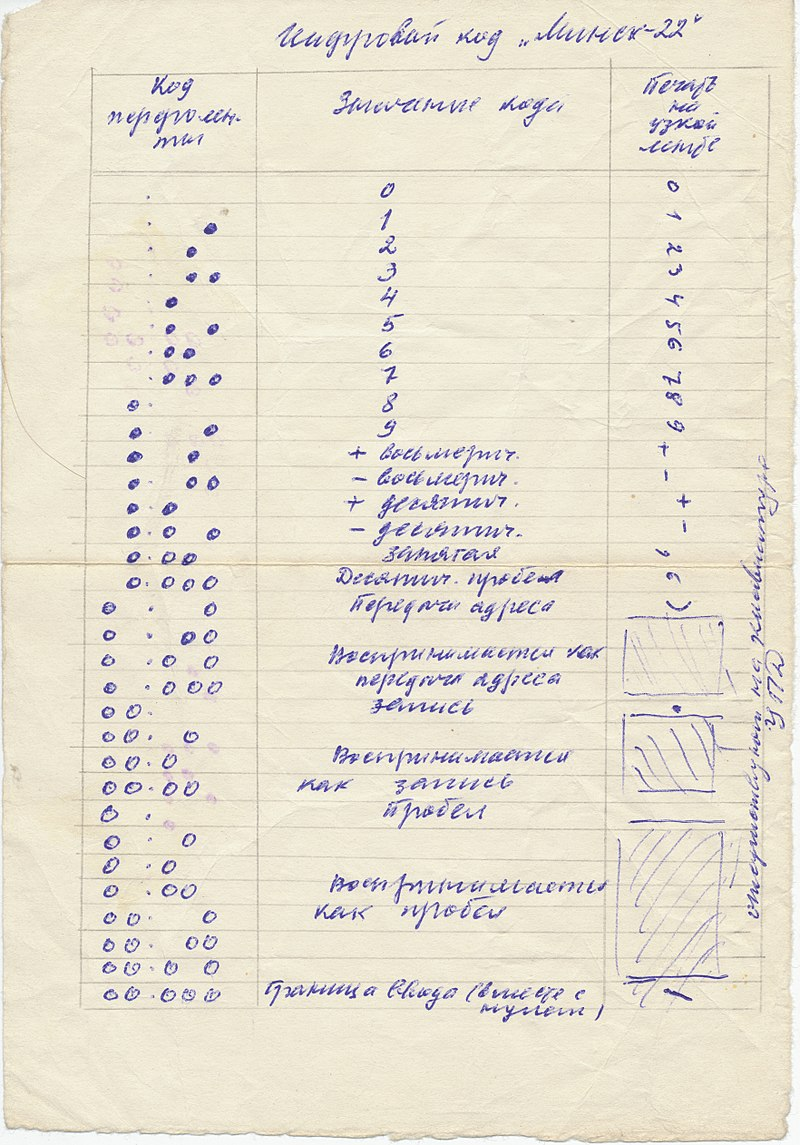 Цифровой код „Минск-22"
Код перфолен-ты
Значение кода
Печать на узкой ленте
0 0
1 1
2 2
3 3
4 4
5 5
6 6
7 7
8 8
9 9
+ восьмерич. +
- восьмерич. -
+ десятич. +
- десятич. -
запятая ,
Десятич. пробел
Передача адреса
Воспринимается как
передача адреса
запись
Воспринимается
как запись
Пробел
Воспринимается
как пробел
Граница ввода (вместе с
нулем)
отсутствуют на клавиатуре